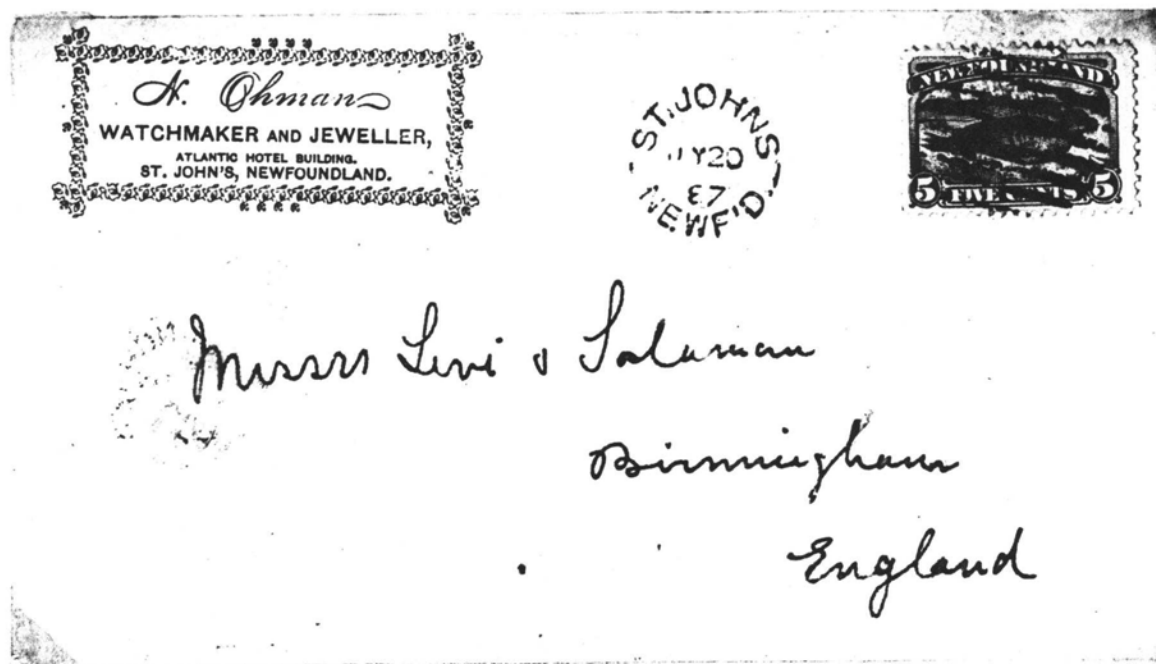 N. Ohman
WATCHMAKER AND JEWELLER,
ATLANTIC HOTEL BUILDING.
ST. JOHN'S, NEWFOUNDLAND.
ST. JOHNS
20
87
NEWF'D
NEWFOUNDLAND
5 FIVE CENTS 5
Messrs Levi & Salaman
Birmingham
England